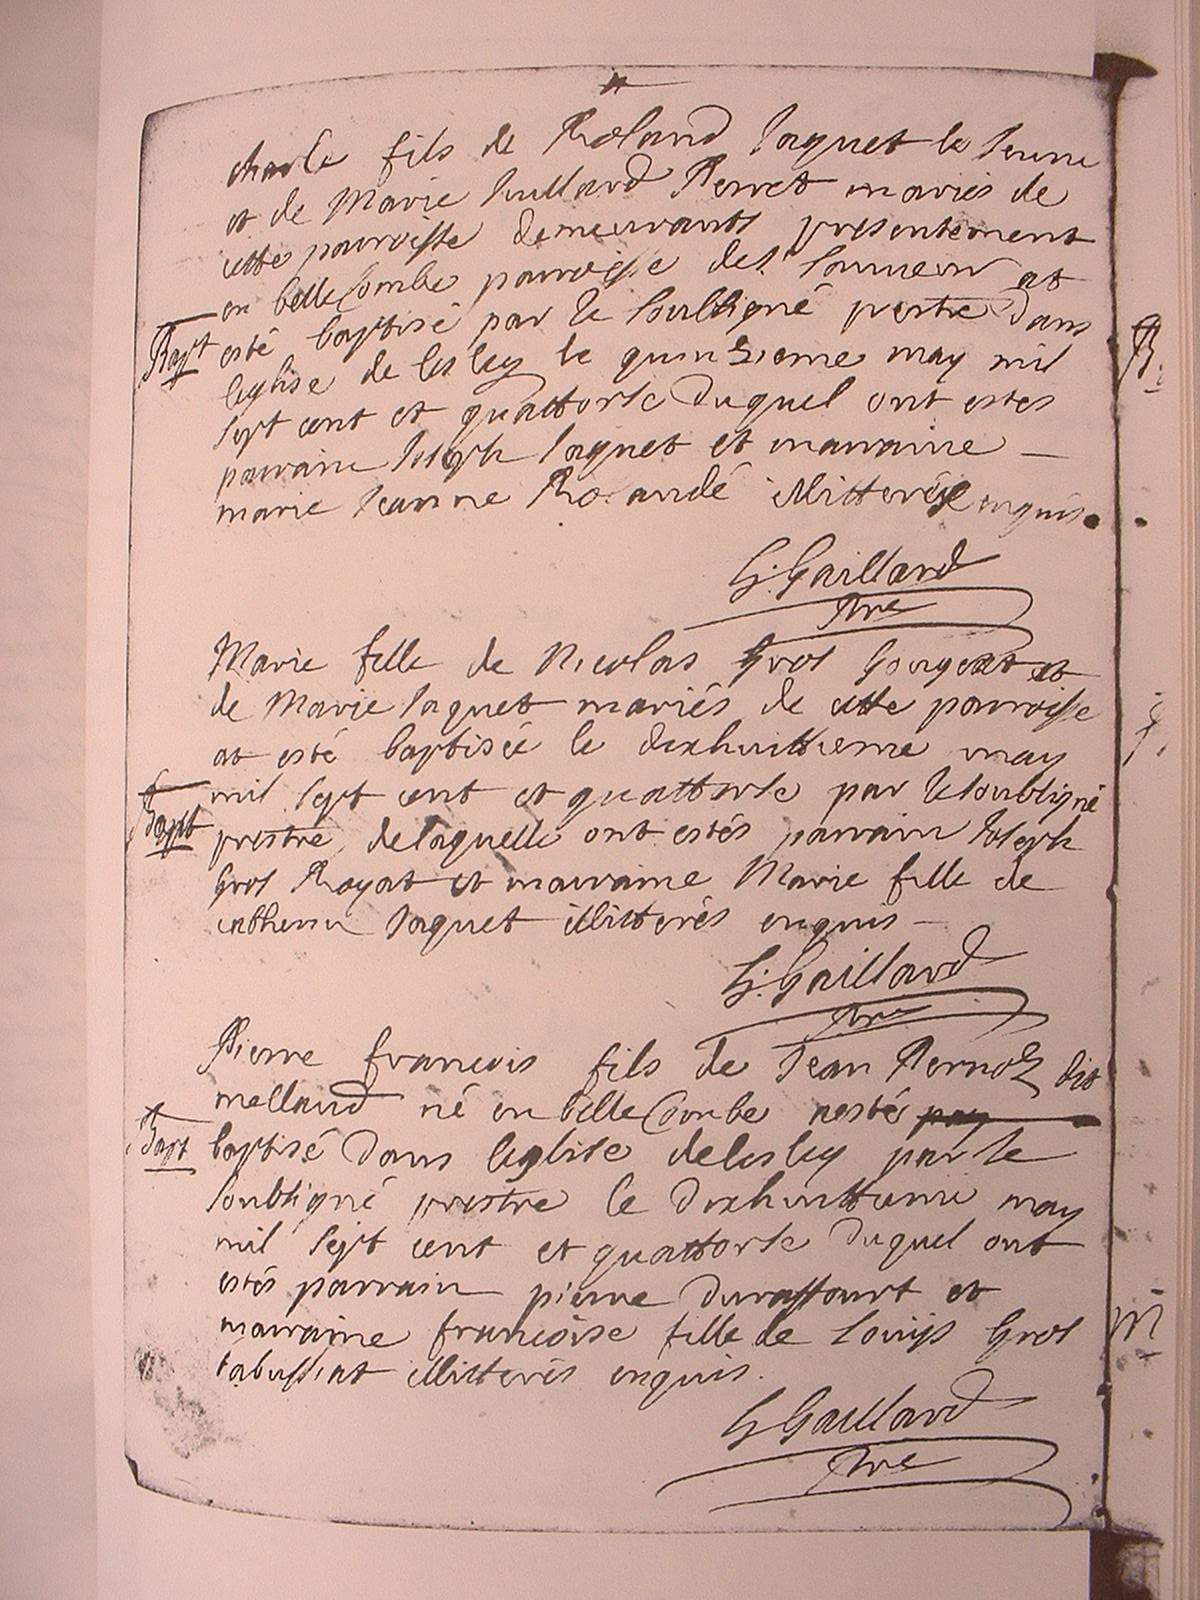 charle fils de Roland Jaquet le Jeune
et de Marie Juillard Perret mariés de
cette parroisse demeurants presentement
en belleCombe parroisse des at
Bapt esté baptisé par le soubsigné prestre dans
leglise de les ley le quinzieme may mil
sept cent et quattorse duquel ont estés
parrain Joseph Jaquet et marraine —
marie Jeanne Rolandé illitterés enquis.
G: Gaillard
Pre
Marie fille de Nicolas Gros Gourgeat et
de Marie Jaquet mariés de cette parroisse
at esté baptisée le dixhuittieme may
mil sept cent et quattorse par le soubsigné
Bapt prestre, de laquelle ont estés parrain Joseph
Gros Royat et marraine Marie fille de
Jaquet illitterés enquis —
G: Gaillard
Pre
Pierre francois fils de Jean Pernoz dit
mellaud né en belleCombe at estés
Bapt baptisé dans leglise de les ley par le
soubsigné prestre le dixhuittieme may
mil sept cent et quattorse duquel ont
estés parrain pierre duraffourt et
marraine francoise fille de Louys Gros
tabussiat illitterés enquis.
G Gaillard
Pre